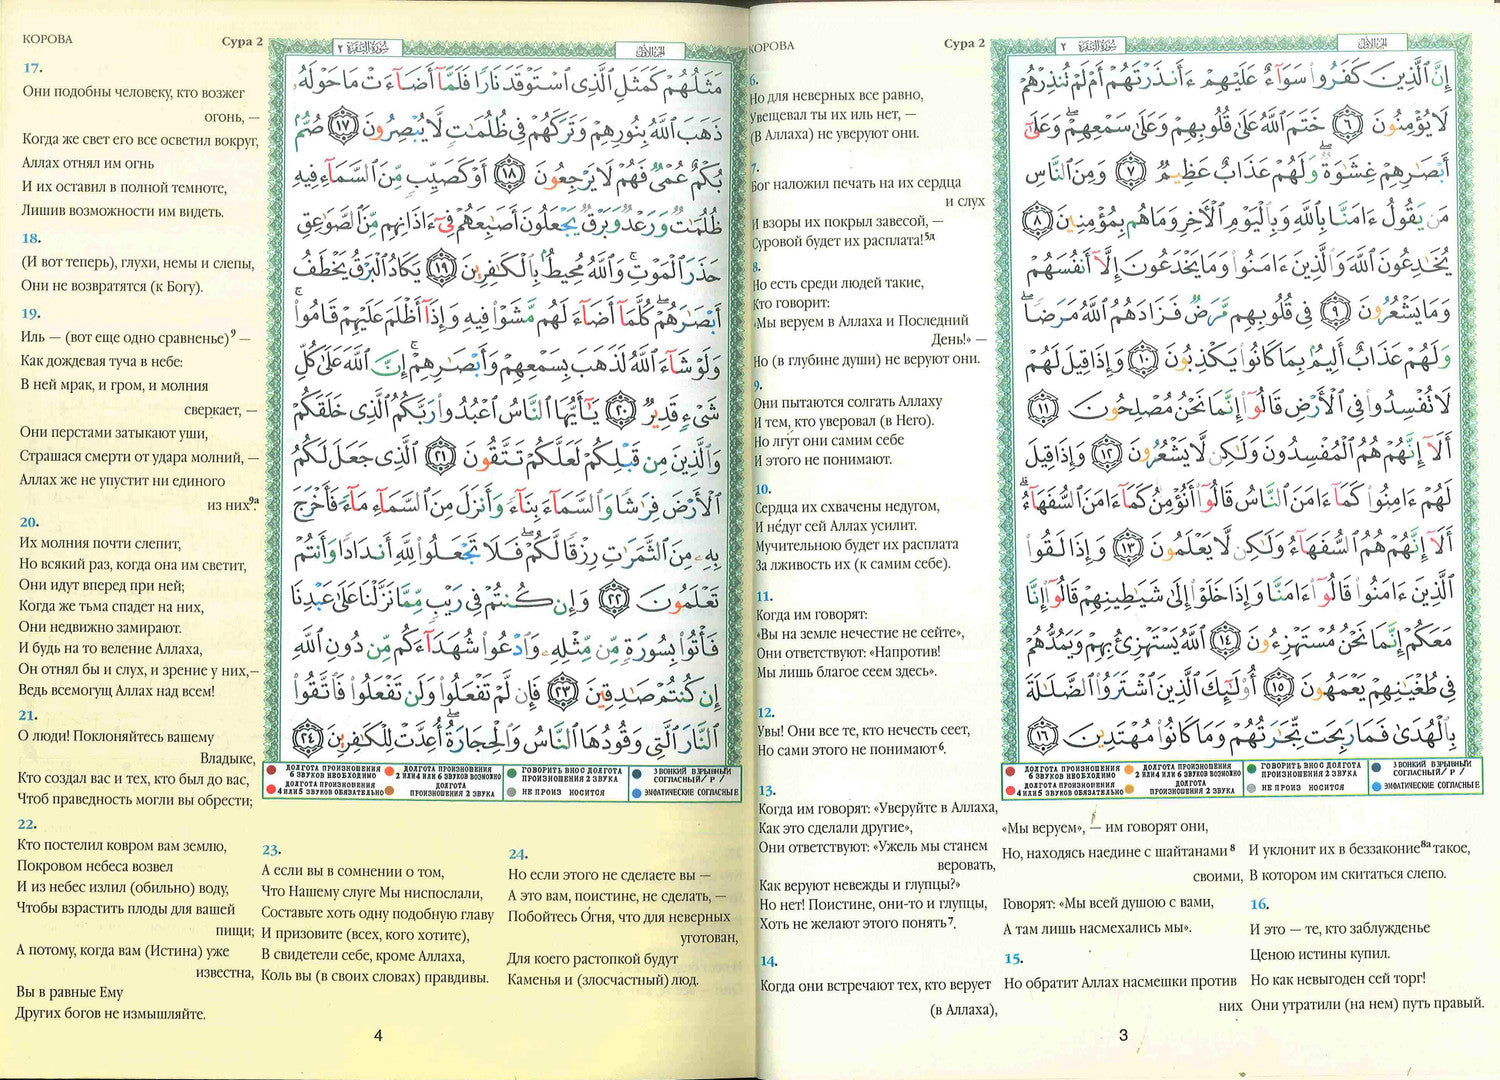 КОРОВА
Сура 2
6.
Но для неверных все равно,
Увещевал ты их иль нет, —
(В Аллаха) не уверуют они.
7.
Бог наложил печать на их сердца
и слух
И взоры их покрыл завесой, —
Суровой будет их расплата!5д
8.
Но есть среди людей такие,
Кто говорит:
«Мы веруем в Аллаха и Последний
День!» —
Но (в глубине души) не веруют они.
9.
Они пытаются солгать Аллаху
И тем, кто уверовал (в Него).
Но лгут они самим себе
И этого не понимают.
10.
Сердца их схвачены недугом,
И не́дуг сей Аллах усилит.
Мучительною будет их расплата
За лживость их (к самим себе).
11.
Когда им говорят:
«Вы на земле нечестие не сейте»,
Они ответствуют: «Напротив!
Мы лишь благое сеем здесь».
12.
Увы! Они все те, кто нечесть сеет,
Но сами этого не понимают6.
13.
Когда им говорят: «Уверуйте в Аллаха,
Как это сделали другие»,
Они ответствуют: «Ужель мы станем
веровать,
Как веруют невежды и глупцы?»
Но нет! Поистине, они-то и глупцы,
Хоть не желают этого понять7.
14.
Когда они встречают тех, кто верует
(в Аллаха),
سُورَةُ البَقَرَةِ ٢
الجزء الأول
إِنَّ ٱلَّذِينَ كَفَرُوا۟ سَوَآءٌ عَلَيْهِمْ ءَأَنذَرْتَهُمْ أَمْ لَمْ تُنذِرْهُمْ
لَا يُؤْمِنُونَ ٦ خَتَمَ ٱللَّهُ عَلَىٰ قُلُوبِهِمْ وَعَلَىٰ سَمْعِهِمْ ۖ وَعَلَىٰٓ
أَبْصَٰرِهِمْ غِشَٰوَةٌ ۖ وَلَهُمْ عَذَابٌ عَظِيمٌ ٧ وَمِنَ ٱلنَّاسِ
مَن يَقُولُ ءَامَنَّا بِٱللَّهِ وَبِٱلْيَوْمِ ٱلْـَٔاخِرِ وَمَا هُم بِمُؤْمِنِينَ ٨
يُخَٰدِعُونَ ٱللَّهَ وَٱلَّذِينَ ءَامَنُوا۟ وَمَا يَخْدَعُونَ إِلَّآ أَنفُسَهُمْ
وَمَا يَشْعُرُونَ ٩ فِى قُلُوبِهِم مَّرَضٌ فَزَادَهُمُ ٱللَّهُ مَرَضًا ۖ
وَلَهُمْ عَذَابٌ أَلِيمٌۢ بِمَا كَانُوا۟ يَكْذِبُونَ ١٠ وَإِذَا قِيلَ لَهُمْ
لَا تُفْسِدُوا۟ فِى ٱلْأَرْضِ قَالُوٓا۟ إِنَّمَا نَحْنُ مُصْلِحُونَ ١١
أَلَآ إِنَّهُمْ هُمُ ٱلْمُفْسِدُونَ وَلَٰكِن لَّا يَشْعُرُونَ ١٢ وَإِذَا قِيلَ
لَهُمْ ءَامِنُوا۟ كَمَآ ءَامَنَ ٱلنَّاسُ قَالُوٓا۟ أَنُؤْمِنُ كَمَآ ءَامَنَ ٱلسُّفَهَآءُ ۗ
أَلَآ إِنَّهُمْ هُمُ ٱلسُّفَهَآءُ وَلَٰكِن لَّا يَعْلَمُونَ ١٣ وَإِذَا لَقُوا۟
ٱلَّذِينَ ءَامَنُوا۟ قَالُوٓا۟ ءَامَنَّا وَإِذَا خَلَوْا۟ إِلَىٰ شَيَٰطِينِهِمْ قَالُوٓا۟ إِنَّا
مَعَكُمْ إِنَّمَا نَحْنُ مُسْتَهْزِءُونَ ١٤ ٱللَّهُ يَسْتَهْزِئُ بِهِمْ وَيَمُدُّهُمْ
فِى طُغْيَٰنِهِمْ يَعْمَهُونَ ١٥ أُو۟لَٰٓئِكَ ٱلَّذِينَ ٱشْتَرَوُا۟ ٱلضَّلَٰلَةَ
بِٱلْهُدَىٰ فَمَا رَبِحَت تِّجَٰرَتُهُمْ وَمَا كَانُوا۟ مُهْتَدِينَ ١٦
ДОЛГОТА ПРОИЗНОШЕНИЯ
6 ЗВУКОВ НЕОБХОДИМО
ДОЛГОТА ПРОИЗНОШЕНИЯ
4 ИЛИ 5 ЗВУКОВ ОБЯЗАТЕЛЬНО
ДОЛГОТА ПРОИЗНОШЕНИЯ
2 ИЛИ 4 ИЛИ 6 ЗВУКОВ ВОЗМОЖНО
ДОЛГОТА
ПРОИЗНОШЕНИЯ 2 ЗВУКА
ГОВОРИТЬ В НОС ДОЛГОТА
ПРОИЗНОШЕНИЯ 2 ЗВУКА
НЕ ПРОИЗ НОСИТСЯ
ЗВОНКИЙ ВЗРЫВНЫЙ
СОГЛАСНЫЙ / Р /
ЭМФАТИЧЕСКИЕ СОГЛАСНЫЕ
«Мы веруем», — им говорят они,
Но, находясь наедине с шайтанами8
своими,
Говорят: «Мы всей душою с вами,
А там лишь насмехались мы».
15.
Но обратит Аллах насмешки против
них
И уклонит их в беззаконие8а такое,
В котором им скитаться слепо.
16.
И это — те, кто заблужденье
Ценою истины купил.
Но как невыгоден сей торг!
Они утратили (на нем) путь правый.
3
КОРОВА
Сура 2
17.
Они подобны человеку, кто возжег
огонь, —
Когда же свет его все осветил вокруг,
Аллах отнял им огнь
И их оставил в полной темноте,
Лишив возможности им видеть.
18.
(И вот теперь), глухи, немы и слепы,
Они не возвратятся (к Богу).
19.
Иль — (вот еще одно сравненье)9 —
Как дождевая туча в небе:
В ней мрак, и гром, и молния
сверкает, —
Они перстами затыкают уши,
Страшася смерти от удара молний, —
Аллах же не упустит ни единого
из них9а.
20.
Их молния почти слепит,
Но всякий раз, когда она им светит,
Они идут вперед при ней;
Когда же тьма спадет на них,
Они недвижно замирают.
И будь на то веление Аллаха,
Он отнял бы и слух, и зрение у них,—
Ведь всемогущ Аллах над всем!
21.
О люди! Поклоняйтесь вашему
Владыке,
Кто создал вас и тех, кто был до вас,
Чтоб праведность могли вы обрести;
22.
Кто постелил ковром вам землю,
Покровом небеса возвел
И из небес излил (обильно) воду,
Чтобы взрастить плоды для вашей
пищи;
А потому, когда вам (Истина) уже
известна,
Вы в равные Ему
Других богов не измышляйте.
سُورَةُ البَقَرَةِ ٢
الجزء الأول
مَثَلُهُمْ كَمَثَلِ ٱلَّذِى ٱسْتَوْقَدَ نَارًا فَلَمَّآ أَضَآءَتْ مَا حَوْلَهُۥ
ذَهَبَ ٱللَّهُ بِنُورِهِمْ وَتَرَكَهُمْ فِى ظُلُمَٰتٍ لَّا يُبْصِرُونَ ١٧ صُمٌّۢ
بُكْمٌ عُمْىٌ فَهُمْ لَا يَرْجِعُونَ ١٨ أَوْ كَصَيِّبٍ مِّنَ ٱلسَّمَآءِ فِيهِ
ظُلُمَٰتٌ وَرَعْدٌ وَبَرْقٌ يَجْعَلُونَ أَصَٰبِعَهُمْ فِىٓ ءَاذَانِهِم مِّنَ ٱلصَّوَٰعِقِ
حَذَرَ ٱلْمَوْتِ ۚ وَٱللَّهُ مُحِيطٌۢ بِٱلْكَٰفِرِينَ ١٩ يَكَادُ ٱلْبَرْقُ يَخْطَفُ
أَبْصَٰرَهُمْ ۖ كُلَّمَآ أَضَآءَ لَهُم مَّشَوْا۟ فِيهِ وَإِذَآ أَظْلَمَ عَلَيْهِمْ قَامُوا۟ ۚ
وَلَوْ شَآءَ ٱللَّهُ لَذَهَبَ بِسَمْعِهِمْ وَأَبْصَٰرِهِمْ ۚ إِنَّ ٱللَّهَ عَلَىٰ كُلِّ
شَىْءٍ قَدِيرٌ ٢٠ يَٰٓأَيُّهَا ٱلنَّاسُ ٱعْبُدُوا۟ رَبَّكُمُ ٱلَّذِى خَلَقَكُمْ
وَٱلَّذِينَ مِن قَبْلِكُمْ لَعَلَّكُمْ تَتَّقُونَ ٢١ ٱلَّذِى جَعَلَ لَكُمُ
ٱلْأَرْضَ فِرَٰشًا وَٱلسَّمَآءَ بِنَآءً وَأَنزَلَ مِنَ ٱلسَّمَآءِ مَآءً فَأَخْرَجَ
بِهِۦ مِنَ ٱلثَّمَرَٰتِ رِزْقًا لَّكُمْ ۖ فَلَا تَجْعَلُوا۟ لِلَّهِ أَندَادًا وَأَنتُمْ
تَعْلَمُونَ ٢٢ وَإِن كُنتُمْ فِى رَيْبٍ مِّمَّا نَزَّلْنَا عَلَىٰ عَبْدِنَا
فَأْتُوا۟ بِسُورَةٍ مِّن مِّثْلِهِۦ وَٱدْعُوا۟ شُهَدَآءَكُم مِّن دُونِ ٱللَّهِ
إِن كُنتُمْ صَٰدِقِينَ ٢٣ فَإِن لَّمْ تَفْعَلُوا۟ وَلَن تَفْعَلُوا۟ فَٱتَّقُوا۟
ٱلنَّارَ ٱلَّتِى وَقُودُهَا ٱلنَّاسُ وَٱلْحِجَارَةُ ۖ أُعِدَّتْ لِلْكَٰفِرِينَ ٢٤
ДОЛГОТА ПРОИЗНОШЕНИЯ
6 ЗВУКОВ НЕОБХОДИМО
ДОЛГОТА ПРОИЗНОШЕНИЯ
4 ИЛИ 5 ЗВУКОВ ОБЯЗАТЕЛЬНО
ДОЛГОТА ПРОИЗНОШЕНИЯ
2 ИЛИ 4 ИЛИ 6 ЗВУКОВ ВОЗМОЖНО
ДОЛГОТА
ПРОИЗНОШЕНИЯ 2 ЗВУКА
ГОВОРИТЬ В НОС ДОЛГОТА
ПРОИЗНОШЕНИЯ 2 ЗВУКА
НЕ ПРОИЗ НОСИТСЯ
ЗВОНКИЙ ВЗРЫВНЫЙ
СОГЛАСНЫЙ / Р /
ЭМФАТИЧЕСКИЕ СОГЛАСНЫЕ
23.
А если вы в сомнении о том,
Что Нашему слуге Мы ниспослали,
Составьте хоть одну подобную главу
И призовите (всех, кого хотите),
В свидетели себе, кроме Аллаха,
Коль вы (в своих словах) правдивы.
24.
Но если этого не сделаете вы —
А это вам, поистине, не сделать, —
Побойтесь О́гня, что для неверных
уготован,
Для коего растопкой будут
Каменья и (злосчастный) люд.
4